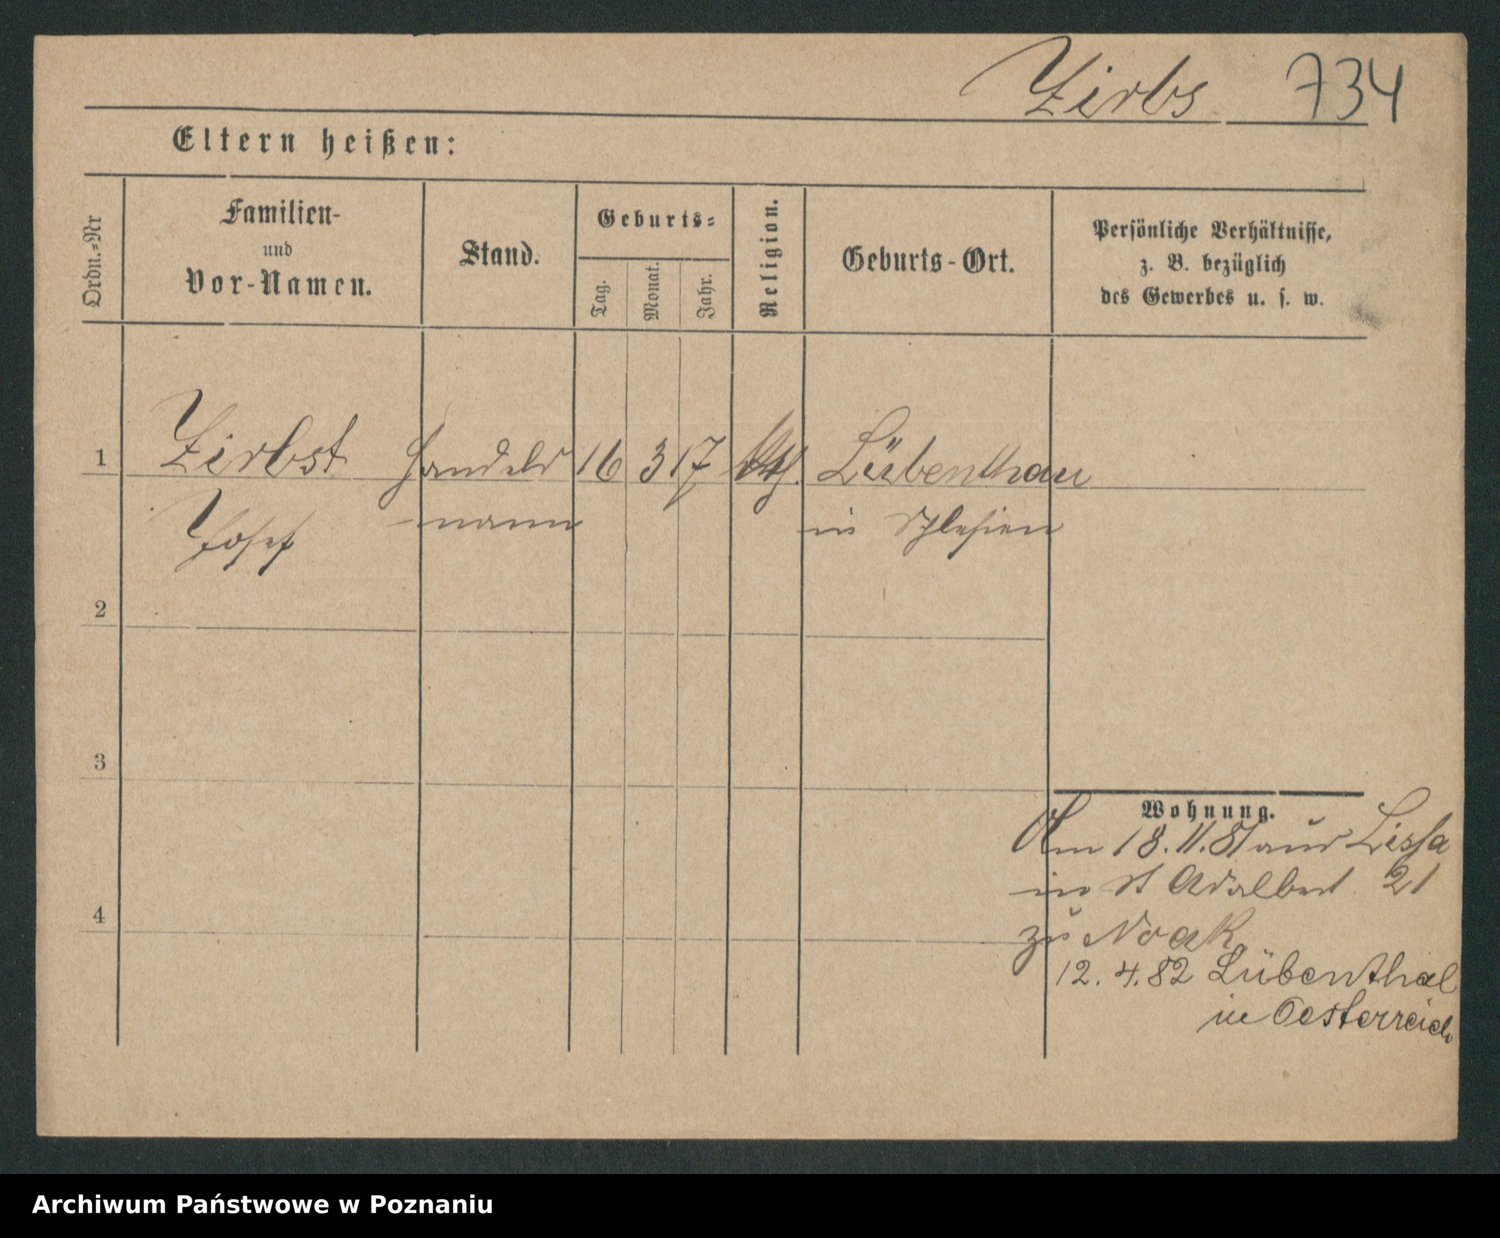 Zirbs. 734
Eltern heißen:
Ordn.=Nr
Familien-
und
Vor-Namen.
Stand.
Geburts=
Tag.
Monat.
Jahr.
Religion.
Geburts-Ort.
Persönliche Verhältnisse,
z. B. bezüglich
des Gewerbes u. s. w.
1 Zirbst Handels 16 3 17 Lübenthau
Josef mann in Schlesien
2
3
Wohnung.
Am 18.11.81 aus Lissa
in St Adalbert 21
4
zu Noak
12.4.82 Lübenthal
in Oesterreich
Archiwum Państwowe w Poznaniu